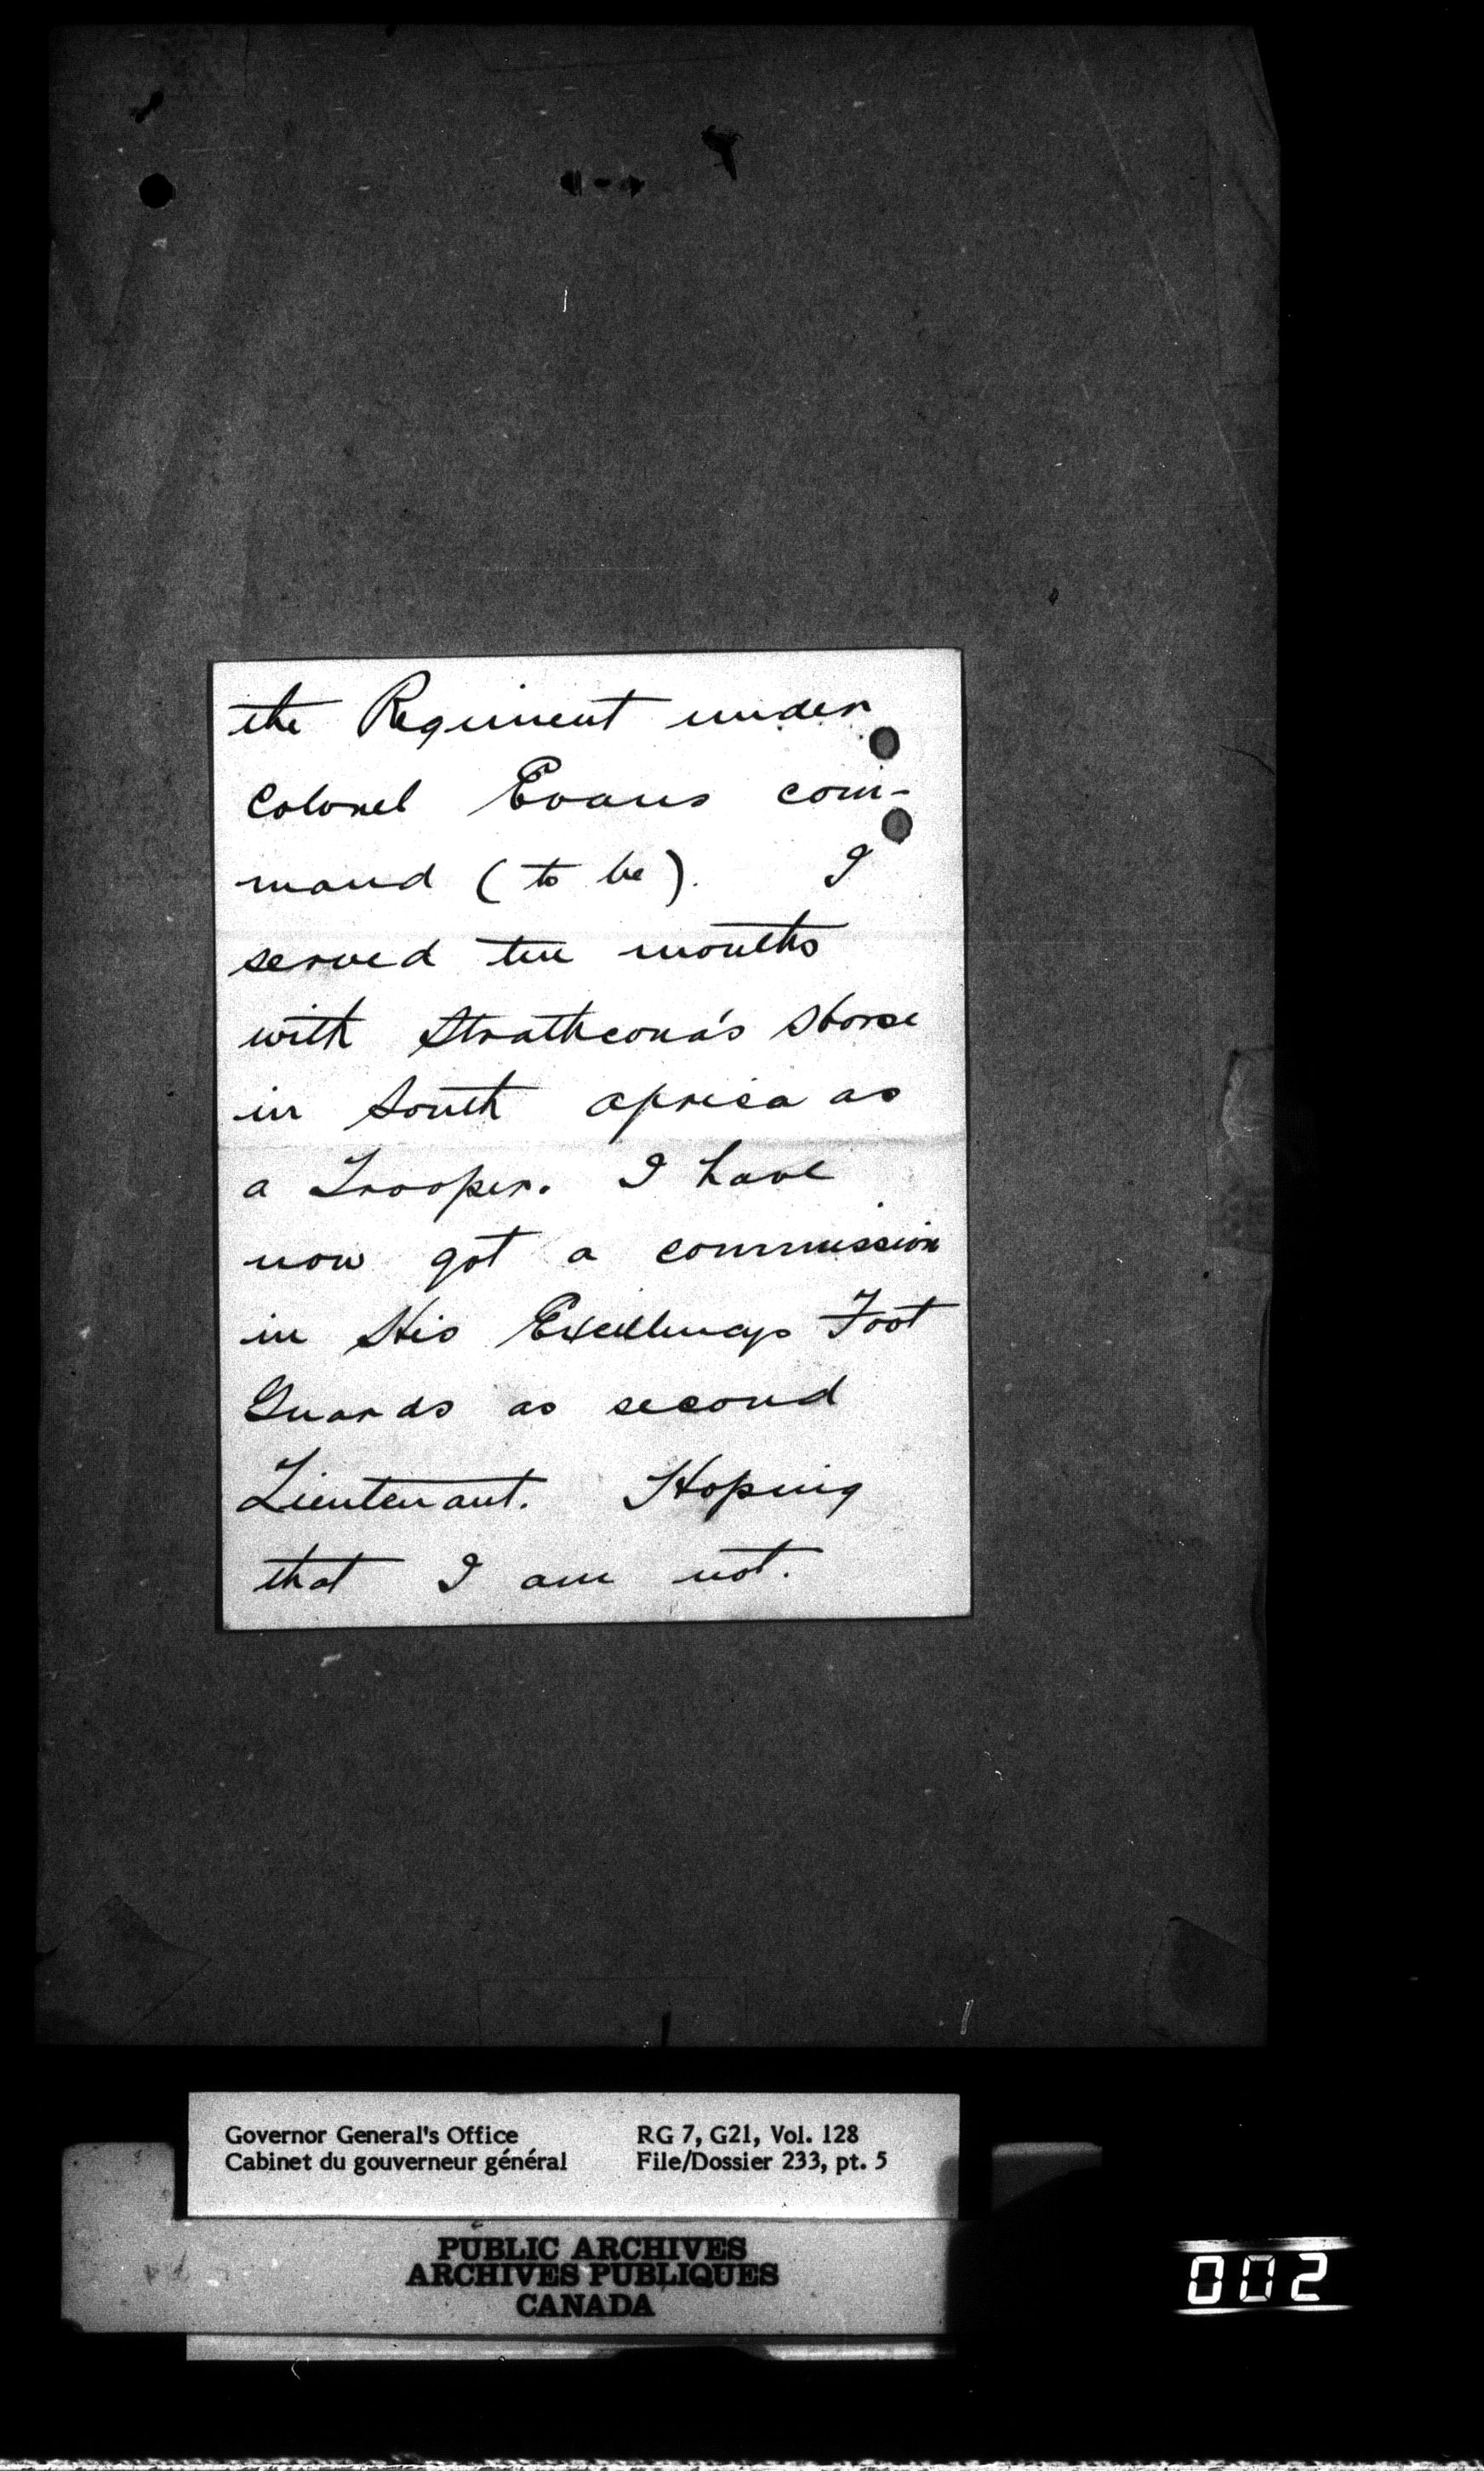 the Regiment under
Colonel Evans com-
mand (to be). I
served ten months
with Strathcona's Horse
in South Africa as
a Trooper. I have
now got a commission
in His Excellencys Foot
Guards as second
Lieutenant. Hoping
that I am not.
Governor General's Office RG 7, G21, Vol. 128
Cabinet du gouverneur général File/Dossier 233, pt. 5
PUBLIC ARCHIVES
ARCHIVES PUBLIQUES
CANADA
002